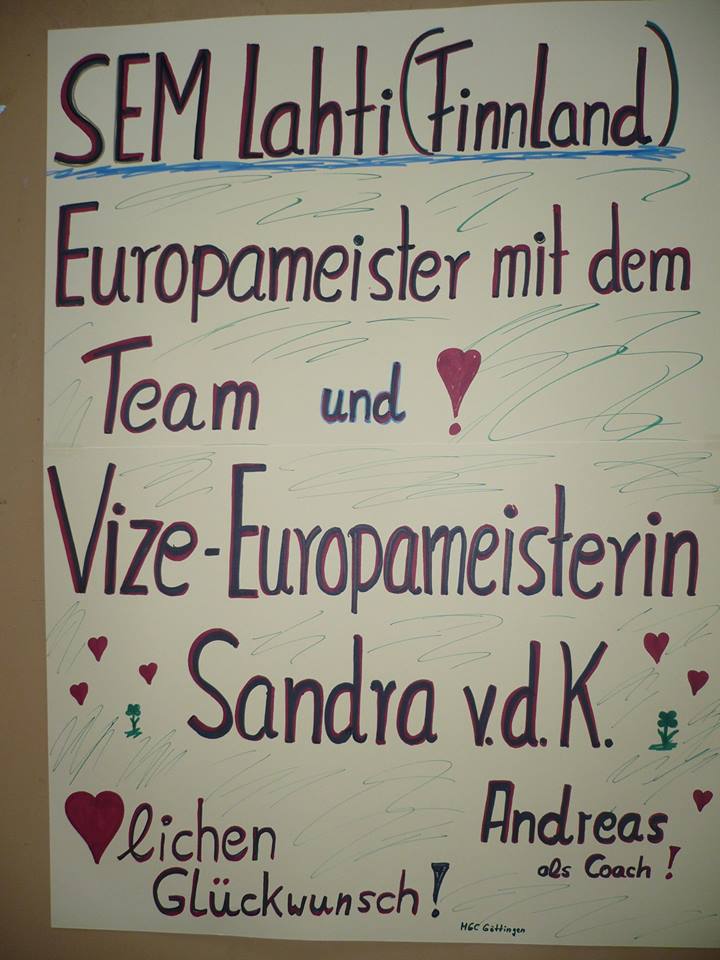 SEM Lahti (Finnland)
Europameister mit dem
Team und !
Vize-Europameisterin
Sandra v.d.K.
lichen
Glückwunsch!
Andreas
als Coach!
MGC Göttingen